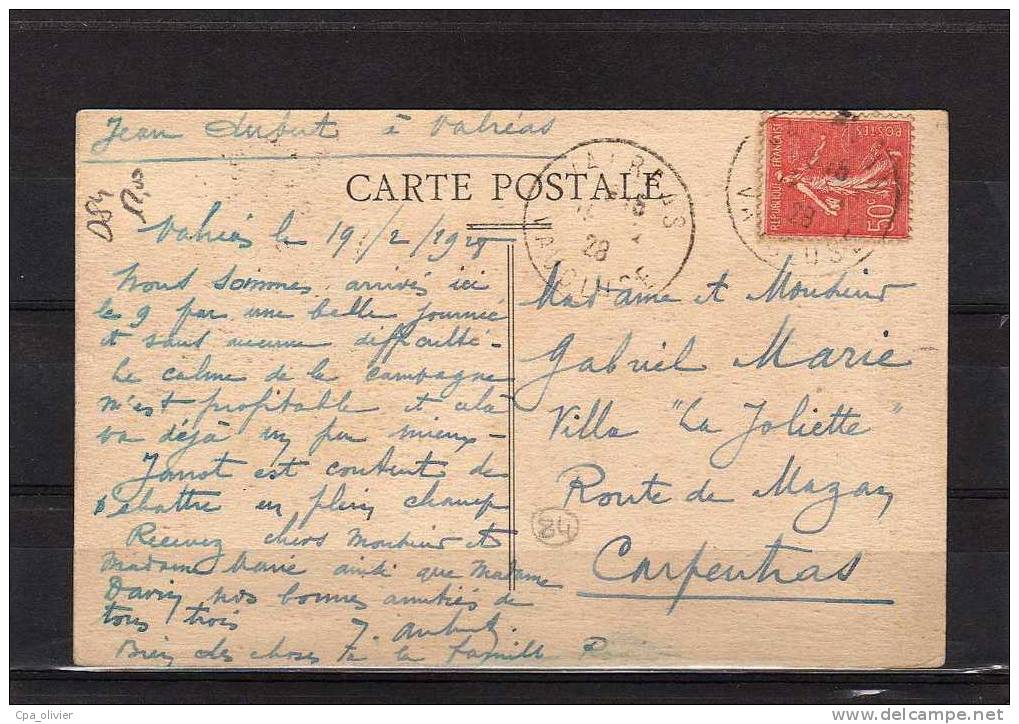 Jean Aubert à Valréas
D84
CARTE POSTALE
VALREAS
28
VAUCLUSE
REPUBLIQUE FRANÇAISE
POSTES
50c
28
Valréas le 19/2/1928
Nous sommes arrivés ici
le 9 par une belle journée
et sans aucune difficulté -
Le calme de la campagne
m'est profitable et cela
va déjà un peu mieux -
Janot est content de s'
ébattre en plein champ
Recevez chers Monsieur et
Madame Marie ainsi que Madame
nos bonnes amitiés de
tous trois
J. Aubert.
Bien des choses à la famille
Madame et Monsieur
Gabriel Marie
Villa "La Joliette"
Route de Mazan
Carpentras
84
Cpa_olivier